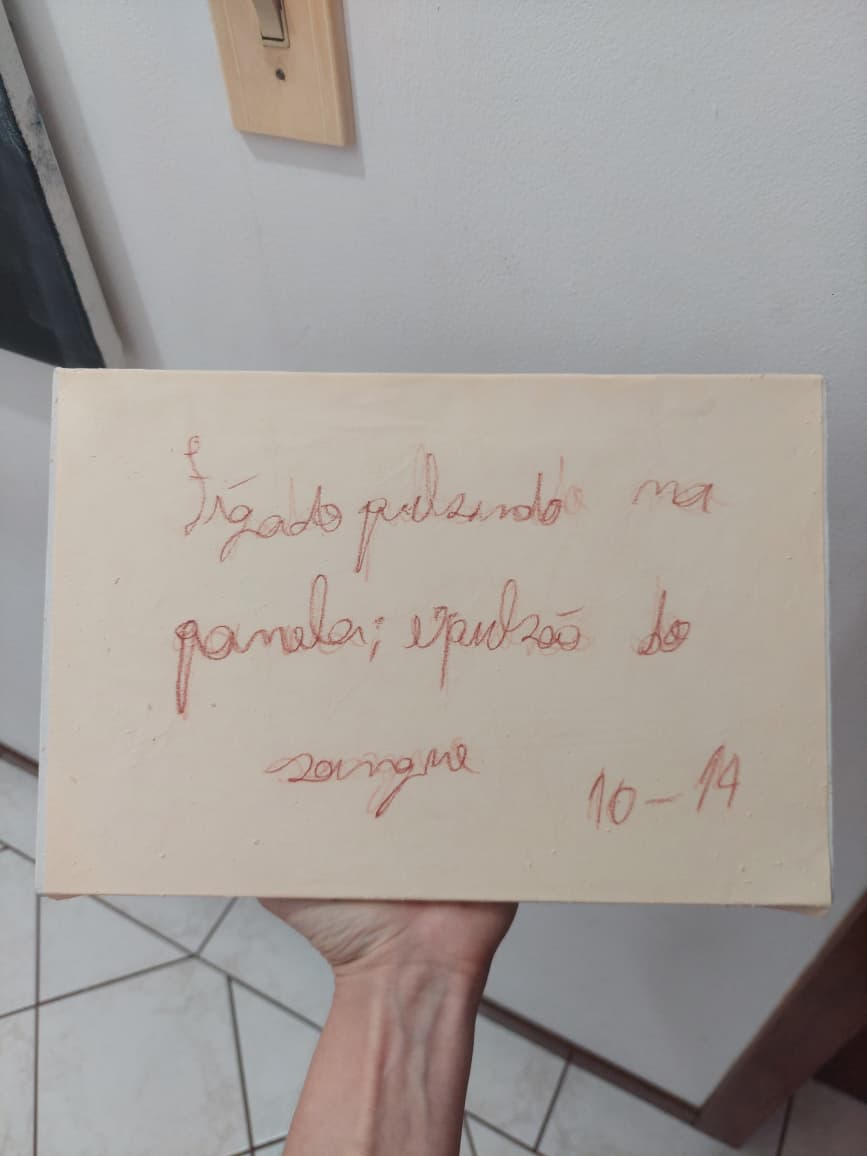 Fígado pulsando na
panela; expulsão do
sangue
10-14